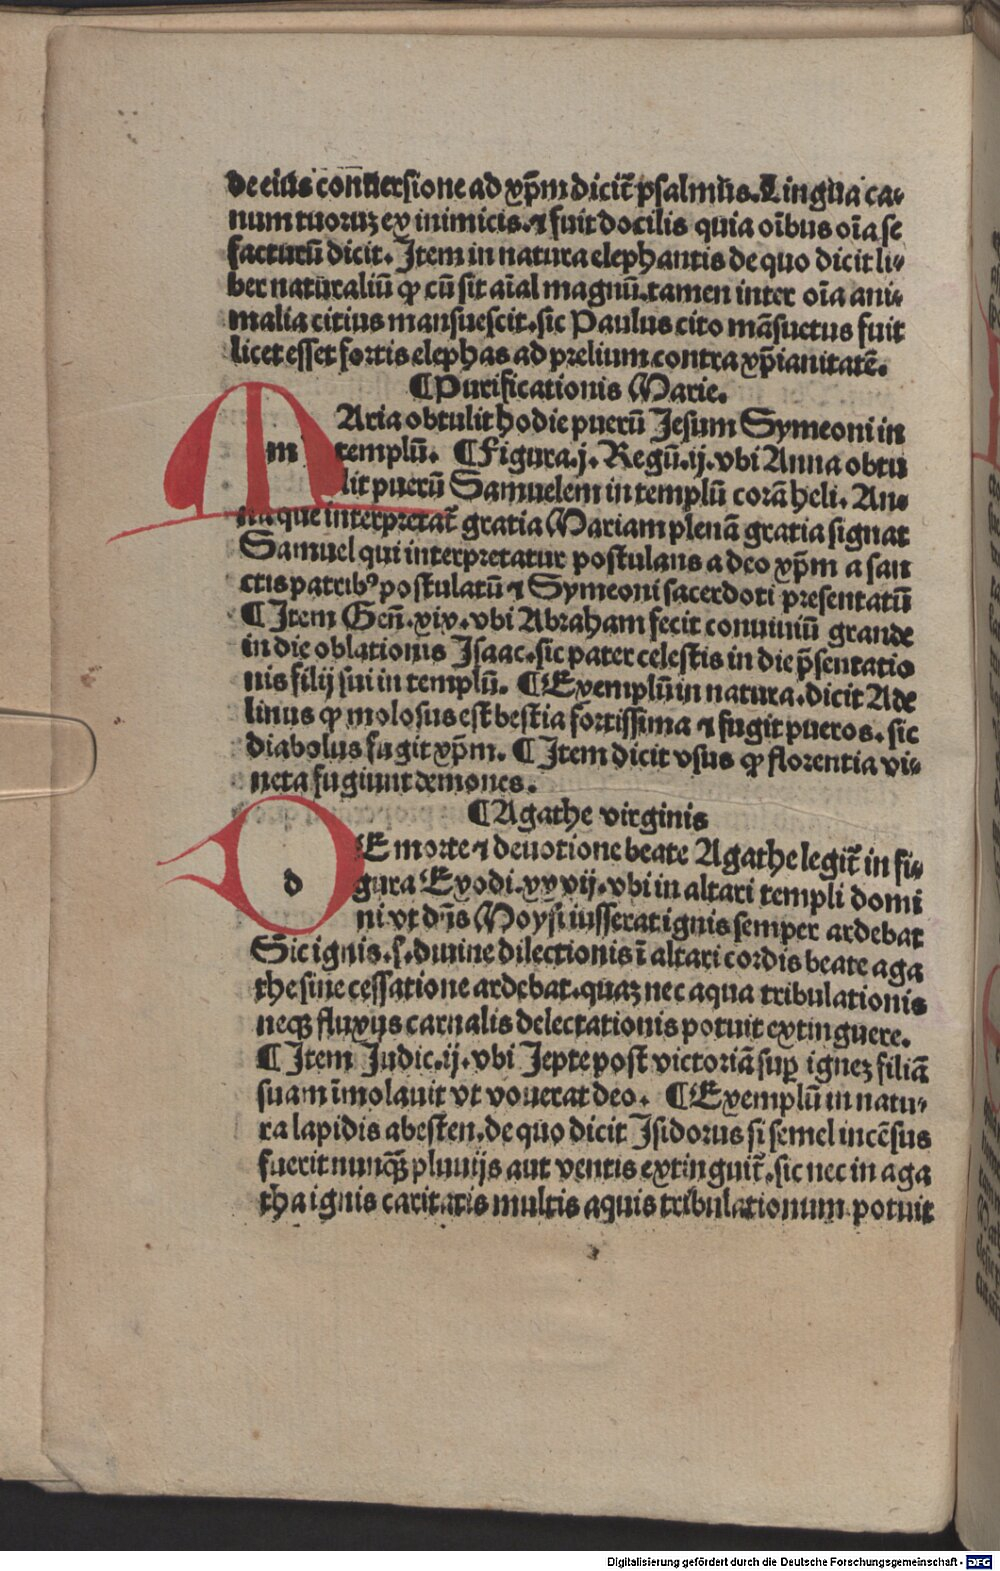 de eius conuersione ad xp̄m dicit᷑ psalmus. Lingua ca⸗
num tuoruꝫ ex inimicis. ⁊ fuit docilis quia oı̄bus oı̄a se
facturū dicit. Item in natura elephantis de quo dicit li⸗
ber naturaliū ꝙ cū sit aı̄al magnū. tamen inter oı̄a ani⸗
malia citius mansuescit. sic Paulus cito māsuetus fuit
licet esset fortis elephas ad prelium contra xp̄ianitatē.
¶ Purificationis Marie.
m Aria obtulit hodie puerū Jesum Symeoni in
templū. ¶ Figura .j. Regū .ij. vbi Anna obtu
lit puerū Samuelem in templū corā heli. An⸗
na que interpretat᷑ gratia Mariam plenā gratia signat
Samuel qui interpretatur postulans a deo xp̄m a san
ctis patribꝰ postulatū ⁊ Symeoni sacerdoti presentatū
¶ Item Gen̄. xix. vbi Abraham fecit conuiuiū grande
in die oblationis Isaac. sic pater celestis in die p̄sentatio
nis filij sui in templū. ¶ Exemplū in natura. dicit Ade
linus ꝙ molosus est bestia fortissima ⁊ fugit pueros. sic
diabolus fugit xp̄m. ¶ Item dicit vsus ꝙ florentia vi⸗
neta fugiunt demones.
¶ Agathe virginis
d E morte ⁊ deuotione beate Agathe legit᷑ in fi⸗
gura Exodi. xxvij. vbi in altari templi domi
ni vt dn̄s Moysi iusserat ignis semper ardebat
Sic ignis .s. diuine dilectionis ı̄ altari cordis beate aga
the sine cessatione ardebat. quaꝫ nec aqua tribulationis
neqꝫ fluxus carnalis delectationis potuit extinguere.
¶ Item Judic. ij. vbi Jepte post victoriā suꝑ igneꝫ filiā
suam ı̄molauit vt vouerat deo. ¶ Exemplū in natu⸗
ra lapidis abesten. de quo dicit Isidorus si semel incēsus
fuerit nunqꝫ̄ pluuijs aut ventis extinguit᷑. sic nec in aga
tha ignis caritatis multis aquis tribulationum potuit
Digitalisierung gefördert durch die Deutsche Forschungsgemeinschaft - DFG